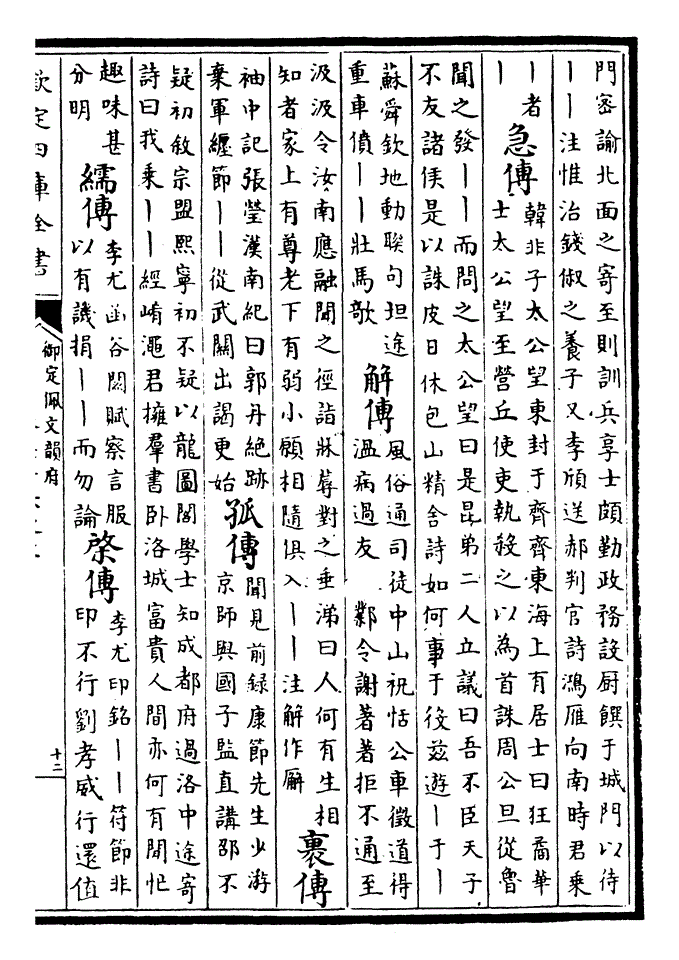 門密諭北面之寄至則訓兵享士頗勤政務設厨饌于城門以待
丨丨注惟治錢俶之養子又李頎送郝判官詩鴻雁向南時君乘
丨者
丨
急傳
韓非子太公望東封于齊齊東海上有居士曰狂矞華
士太公望至營丘使吏執殺之以為首誅周公旦從魯
聞之發丨丨而問之太公望曰是昆弟二人立議曰吾不臣天子
不友諸侯是以誅皮日休包山精舍詩如何事于役兹遊丨于丨
蘇舜欽地動聯句坦途
重車僨丨丨壯馬歌
解傳
風俗通司徒中山祝恬公車徵道得
溫病過友 鄴令謝著著拒不通至
汲汲令汝南應融聞之徑詣牀蓐對之垂涕曰人何有生相
知者家上有尊老下有弱小願相隨俱入丨丨注解作廨
裏傳
袖中記張瑩漢南紀曰郭丹絶跡
棄軍纒節丨丨從武關出謁更始
孤傳
聞見前録康節先生少游
京師與國子監直講邵不
疑初敘宗盟熙寧初不疑以龍圖閣學士知成都府過洛中途寄
詩曰我乘丨丨經崤澠君擁羣書卧洛城富貴人間亦何有閒忙
趣味甚
分明
繻傳
李尤函谷關賦察言服
以有譏捐丨丨而勿論
棨傳
李尤印銘丨丨符節非
印不行劉孝威行還值
欽定四庫全書
御定佩文韻府
十二